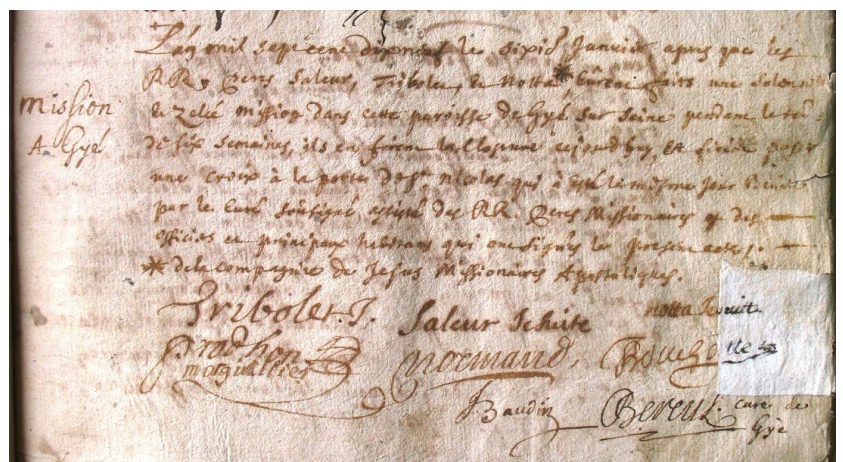 mission
A Gyé
L'an mil sept cent dixneuf le sixie Janvier apres que les
RR. Peres Saleur, Tribolet, & Notta * eurent faits une solen
& zelée mission dans cette paroisse de Gyé sur Seine pendant le
de six semaines, ils en firent la closture aujourdhuy, et firent poser
une croix à la porte de St nicolas qui à esté le mesme jour benite
par le curé soussigné assisté des RR. Peres Missionaires & des
officiers et principaux habitans qui ont signés le present acte.
* de la compagnie de Jesus Missionaires Apostoliques.
Tribolet. J. Saleur Jesuite notta Jesuitte
Prodhon normand,
marguillier
Baudin Bereux. curé de
Gyé